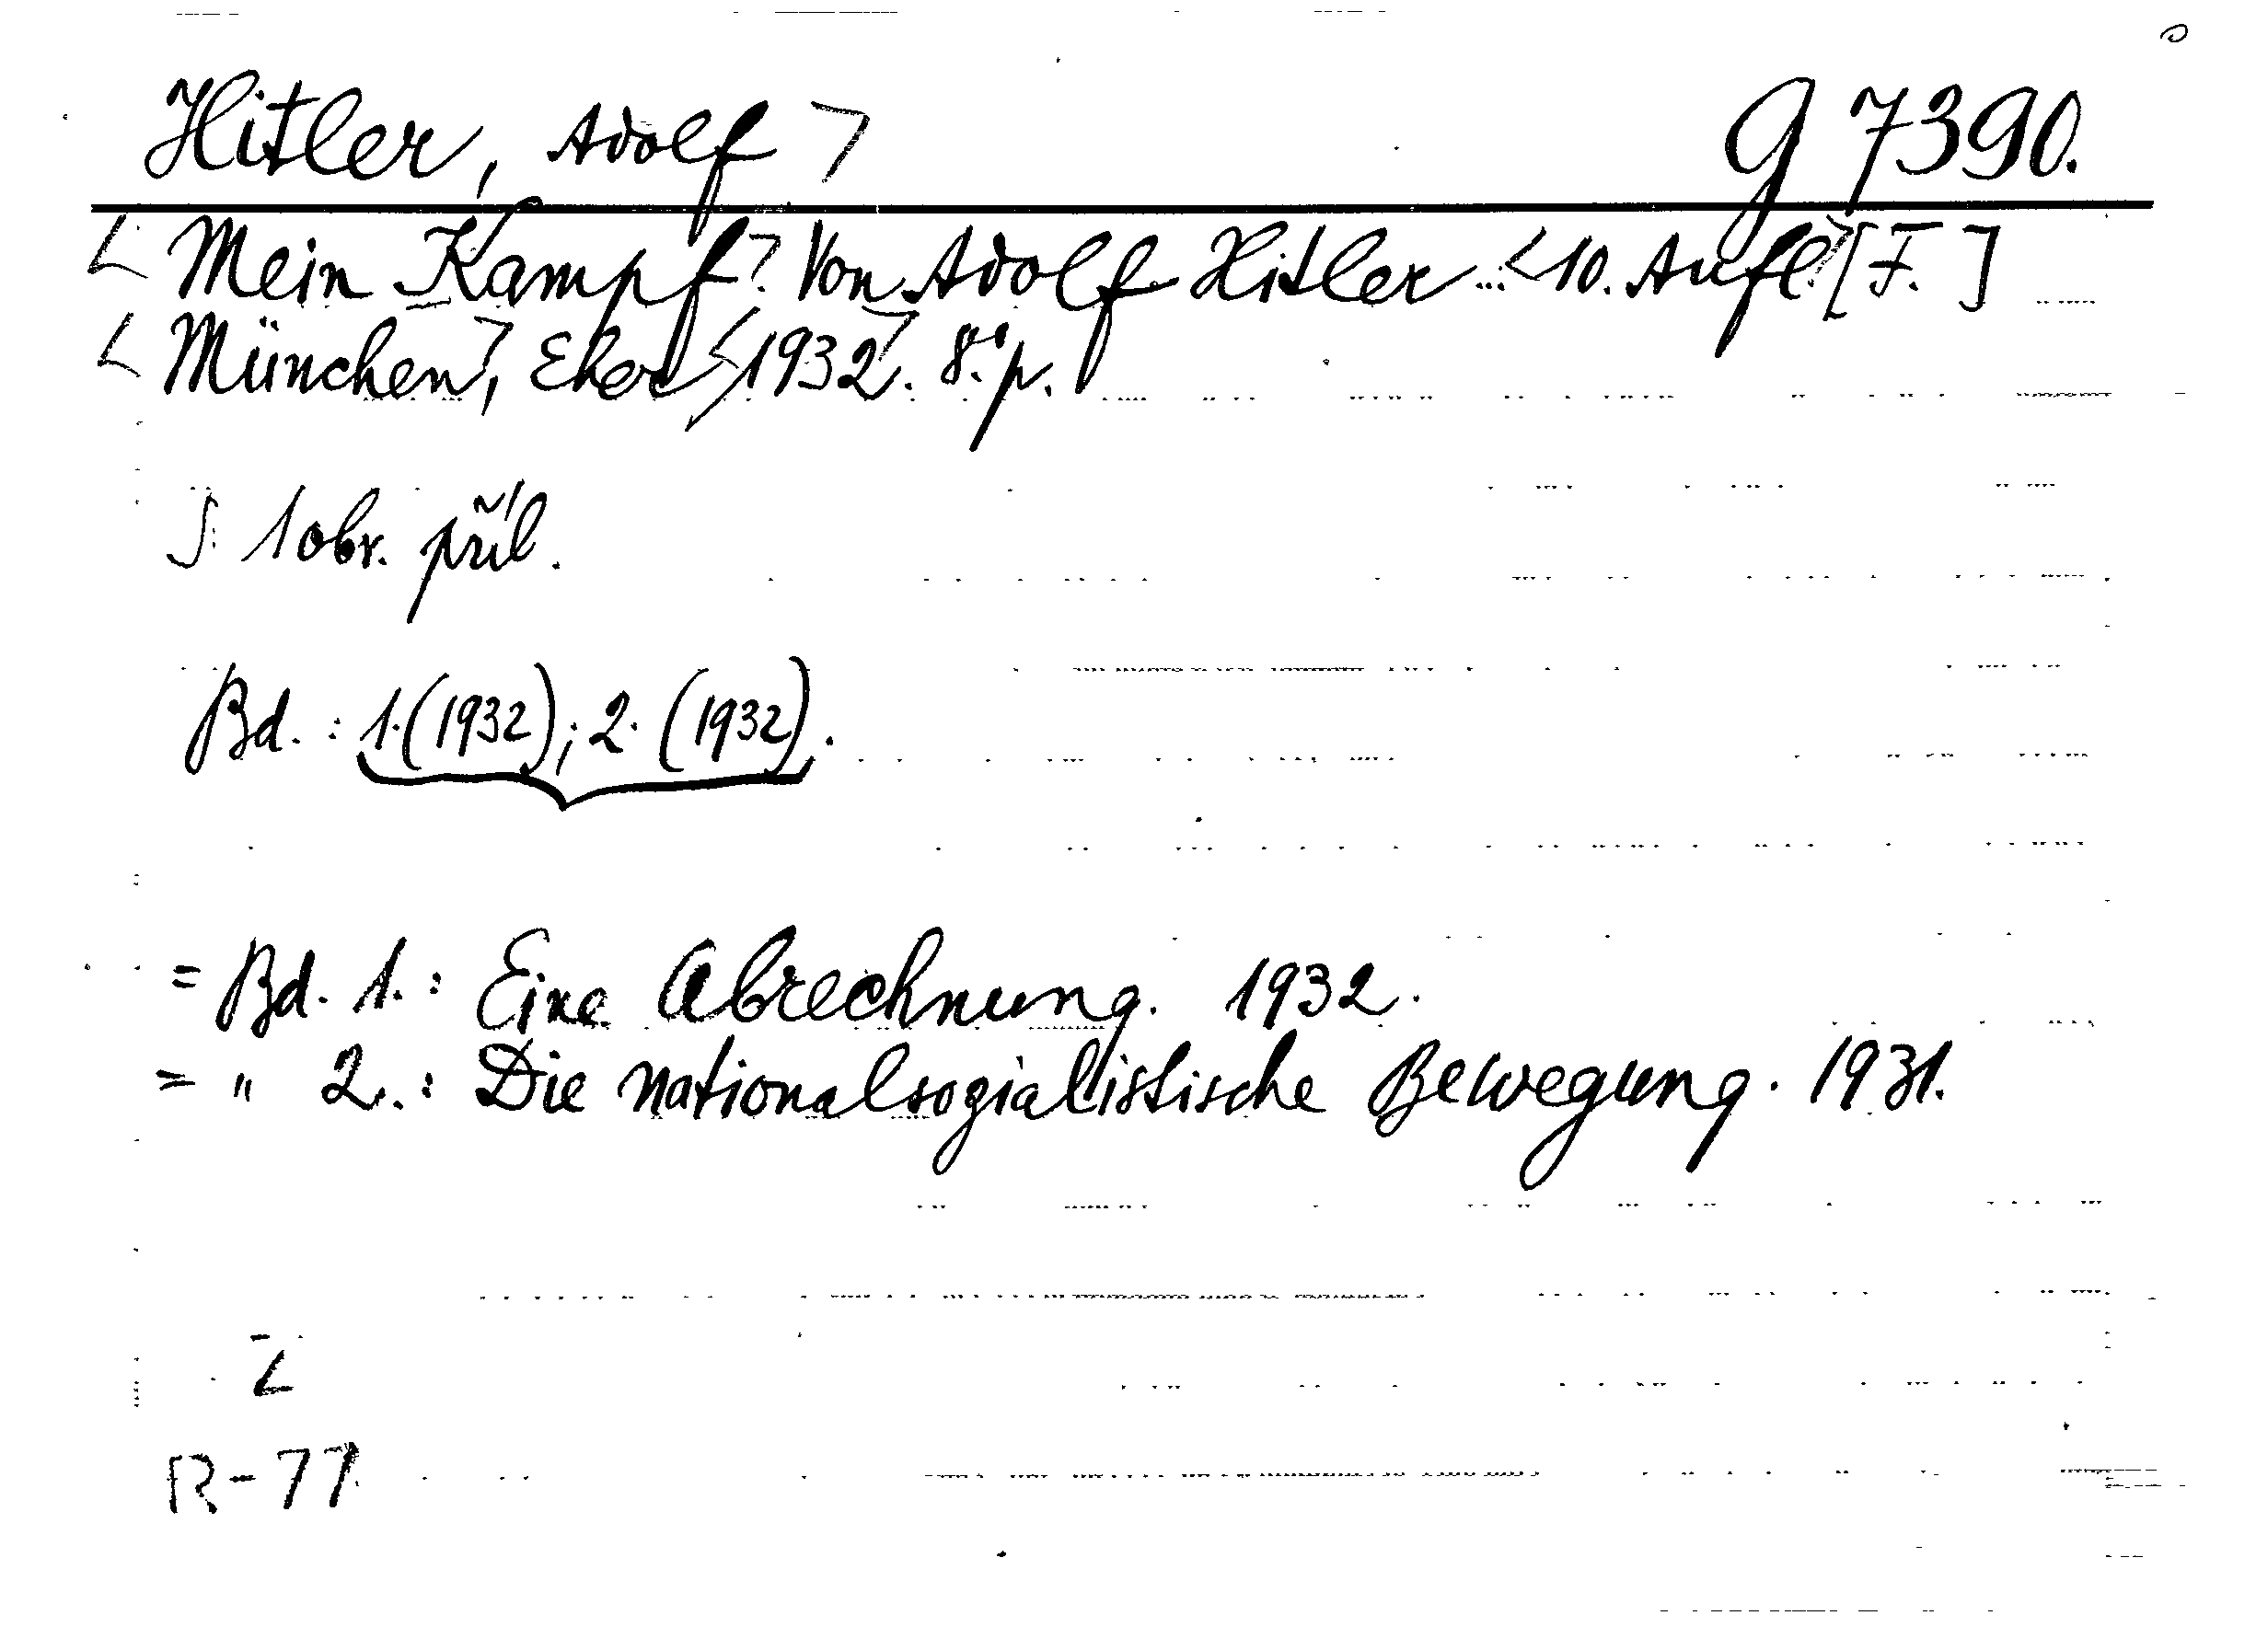 Hitler, Adolf > G 7390.
< Mein Kampf > Von Adolf Hitler ... < 10. Aufl. > [F.]
< München >, Eher < 1932 >. 8.° p.
S 1 obr. příl.
Bd. : 1. (1932); 2. (1932).
= Bd. 1. : Eine Abrechnung. 1932.
= " 2. : Die nationalsozialistische Bewegung. 1931.
Z
R-77